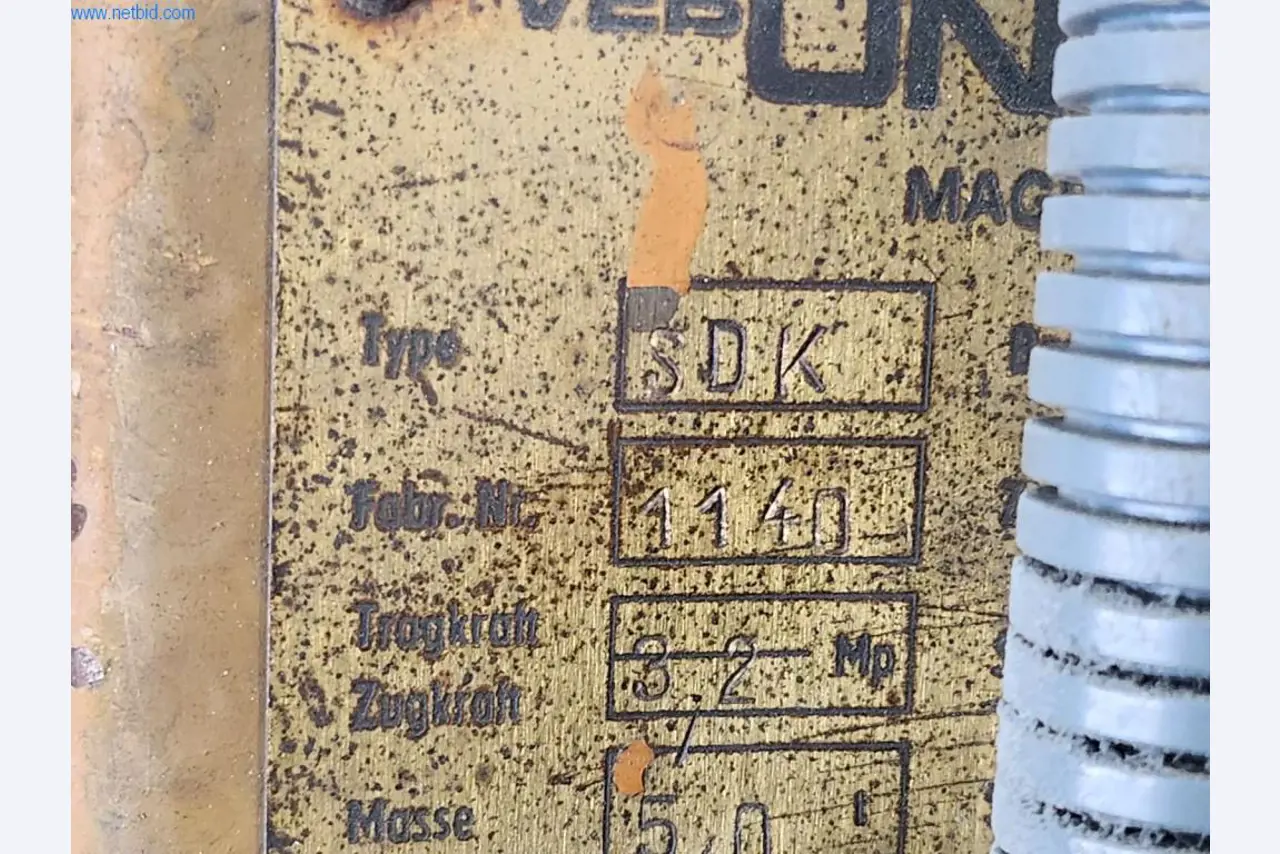 www.netbid.com
VEB UN
MAG
Type SDK
Fabr. Nr. 1140
Tragkraft
3,2 Mp
Zugkraft
Masse 5,0 t